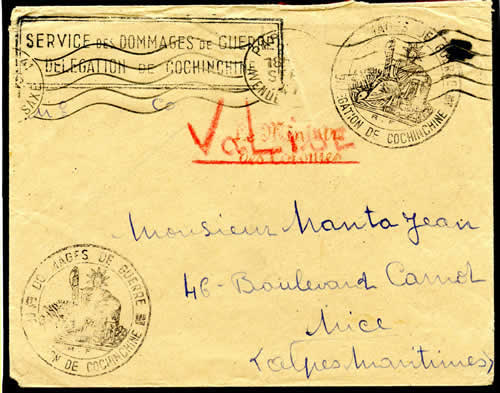 SERVICE DES DOMMAGES DE GUERRE
DELEGATION DE COCHINCHINE
SAXE
AVENUE
18
MAGES DE GUE
GATION DE COCHINCHINE
VALISE
Ministre
des Colonies
Monsieur Manta Jean
46-Boulevard Carnot
Nice
(Alpes Maritimes)
DO MAGES DE GUERRE
ON DE COCHINCHINE